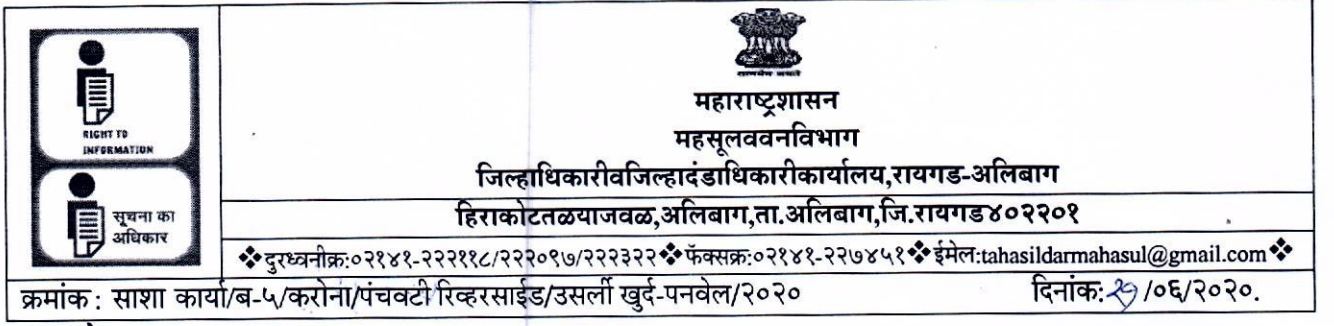 RIGHT TO
INFORMATION
सूचना का
अधिकार
महाराष्ट्रशासन
महसूलववनविभाग
जिल्हाधिकारीवजिल्हादंडाधिकारीकार्यालय,रायगड-अलिबाग
हिराकोटतळयाजवळ,अलिबाग,ता.अलिबाग,जि.रायगड४०२२०१
❖दुरध्वनीक्र:०२१४१-२२२११८/२२२०९७/२२२३२२❖फॅक्सक्र:०२१४१-२२७४५१❖ईमेल:tahasildarmahasul@gmail.com❖
क्रमांक: साशा कार्या/ब-५/करोना/पंचवटी रिव्हरसाईड/उसर्ली खुर्द-पनवेल/२०२० दिनांक: /०६/२०२०.